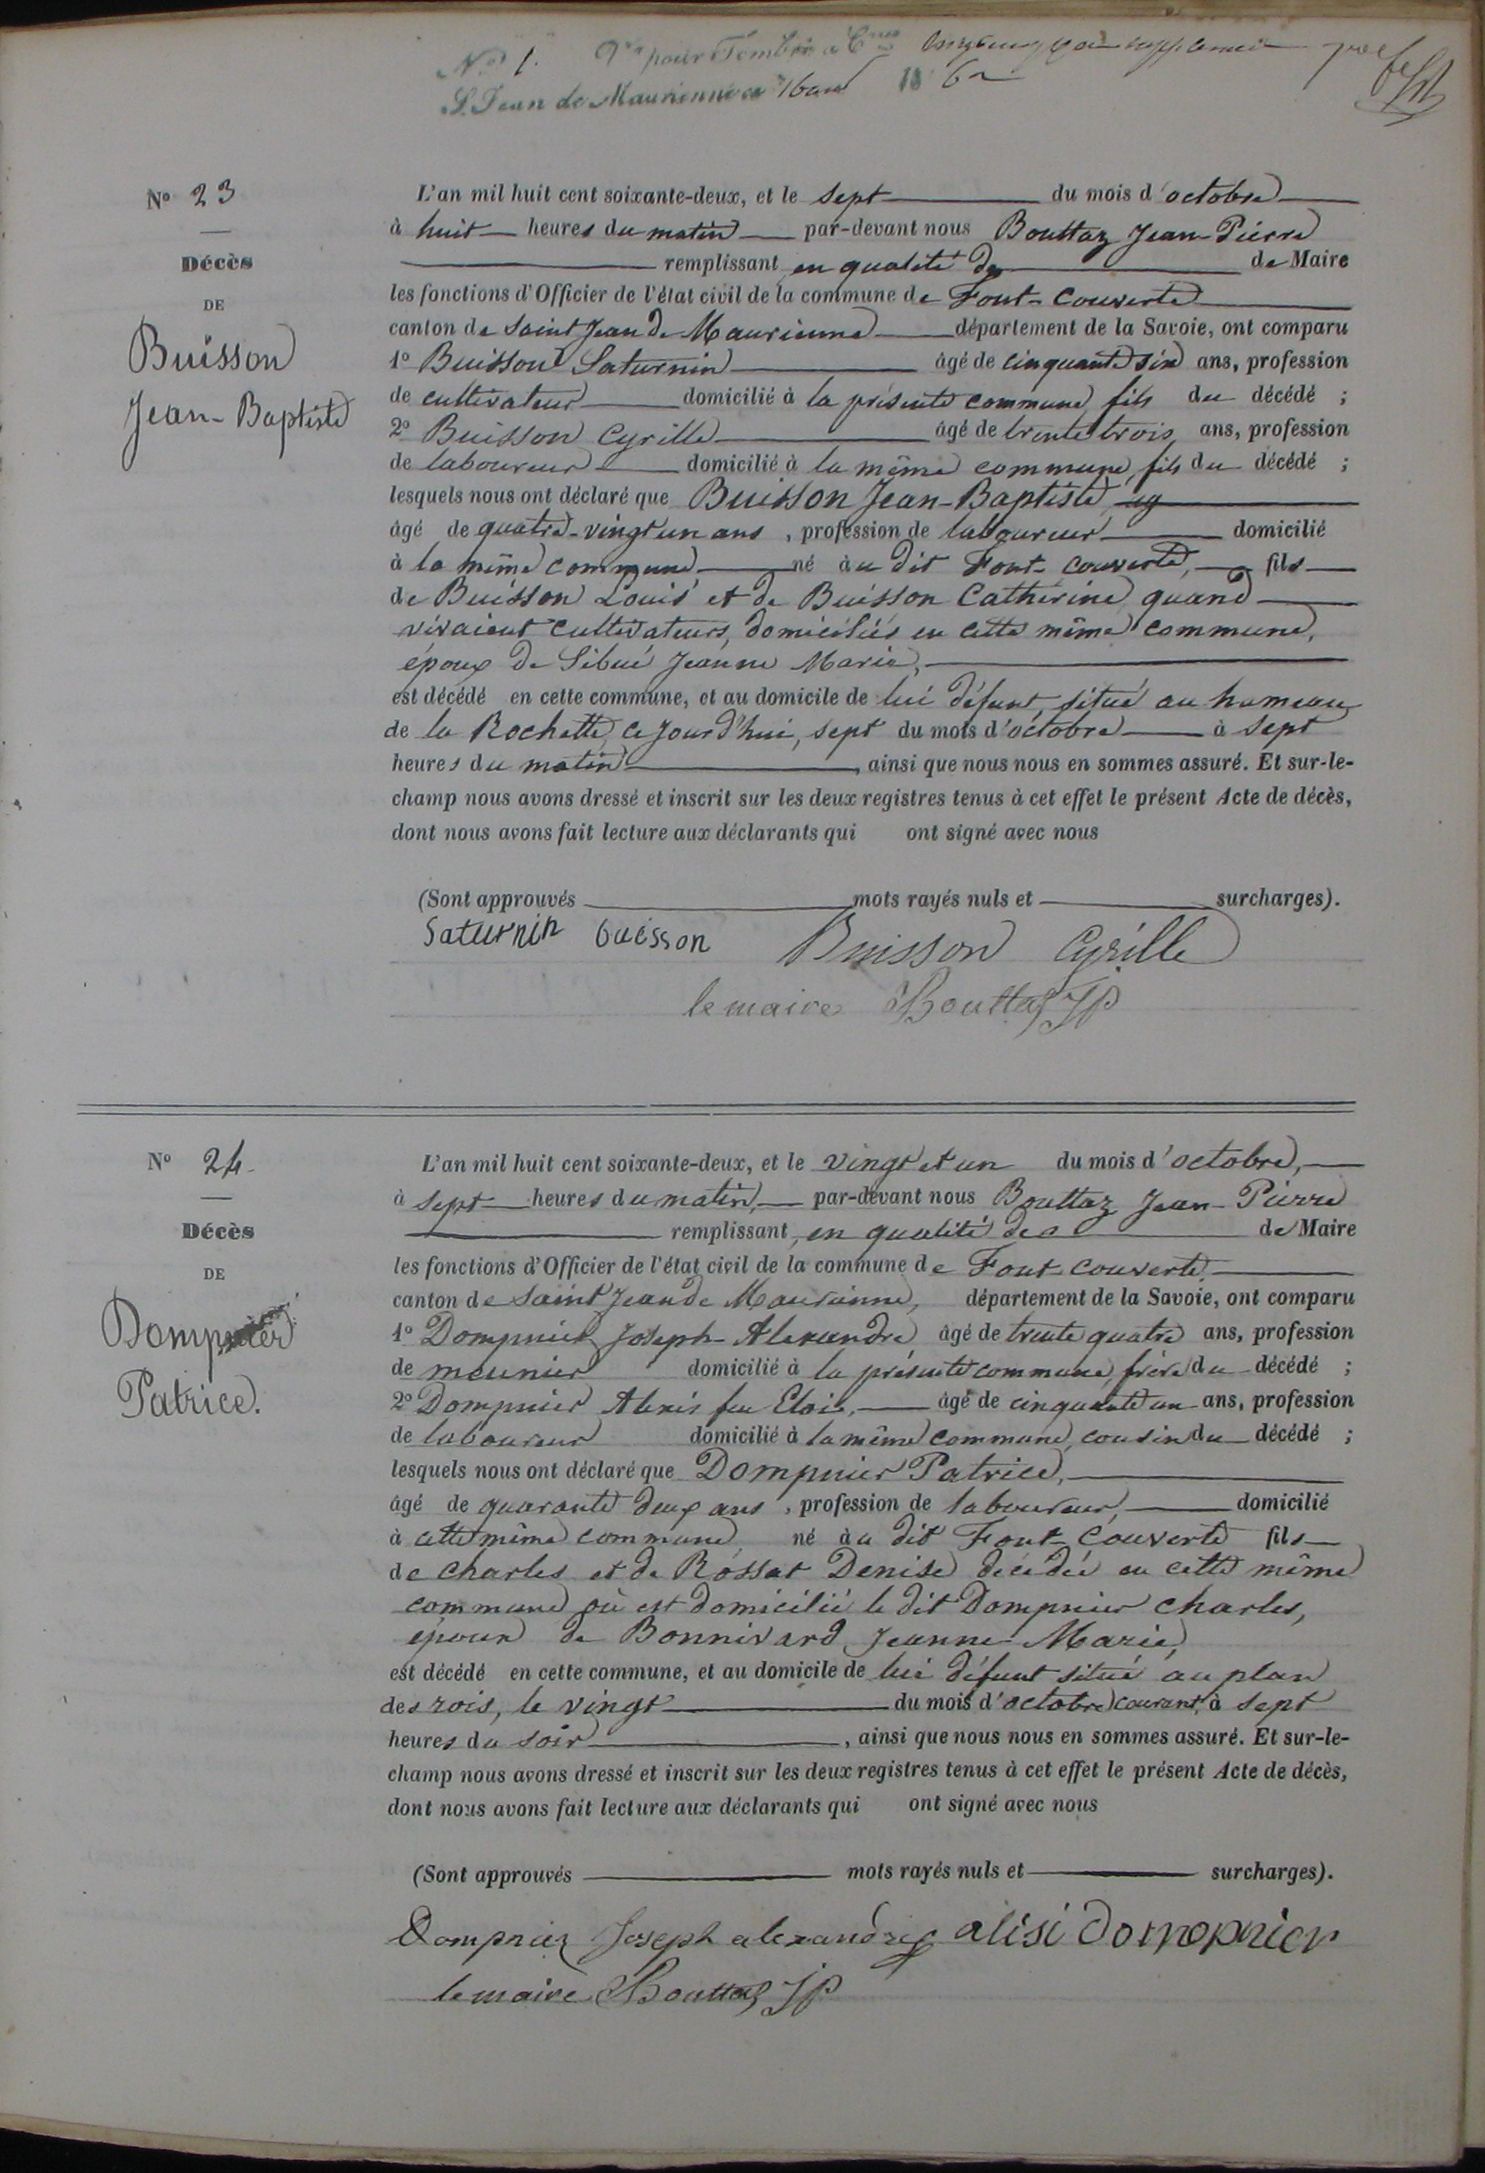 N° 1. Vu pour Timbre à Cmes
St. Jean de Maurienne ce 16 1862
N° 23
Décès
DE
Buisson
Jean-Baptiste
L'an mil huit cent soixante-deux, et le sept du mois d'octobre
à huit heures du matin par-devant nous Bouttaz Jean-Pierre
remplissant en qualité de de Maire
les fonctions d'Officier de l'état civil de la commune de Font-Couverte
canton de Saint Jean de Maurienne département de la Savoie, ont comparu
1° Buisson Saturnin âgé de cinquante six ans, profession
de cultivateur domicilié à la présente commune, fils du décédé ;
2° Buisson Cyrille âgé de trente trois ans, profession
de laboureur domicilié à la même commune, fils du décédé ;
lesquels nous ont déclaré que Buisson Jean-Baptiste, ag
âgé de quatre-vingt un ans, profession de laboureur domicilié
à la même commune né àu dit Font-Couverte, fils
de Buisson Louis et de Buisson Catherine quand
vivaient cultivateurs, domiciliés en cette même commune,
époux de Sibué Jeanne Marie,
est décédé en cette commune, et au domicile de lui défunt, situé au hameau
de la Rochette, ce jourd'hui, sept du mois d'octobre à sept
heures du matin, ainsi que nous nous en sommes assuré. Et sur-le-
champ nous avons dressé et inscrit sur les deux registres tenus à cet effet le présent Acte de décès,
dont nous avons fait lecture aux déclarants qui ont signé avec nous
(Sont approuvés mots rayés nuls et surcharges).
Saturnin buisson Buisson Cyrille
le maire Bouttaz JP
N° 24
Décès
DE
Dompnier
Patrice.
L'an mil huit cent soixante-deux, et le vingt et un du mois d'octobre,
à sept heures du matin, par-devant nous Bouttaz Jean-Pierre
remplissant, en qualité de de Maire
les fonctions d'Officier de l'état civil de la commune de Font Couverte
canton de Saint Jean de Maurienne, département de la Savoie, ont comparu
1° Dompnier Joseph-Alexandre âgé de trente quatre ans, profession
de meunier domicilié à la présente commune, frère du décédé ;
2° Dompnier Alexis feu Eloi, âgé de cinquante un ans, profession
de laboureur domicilié à la même commune, cousin du décédé ;
lesquels nous ont déclaré que Dompnier Patrice,
âgé de quarante deux ans, profession de laboureur, domicilié
à cette même commune, né àu dit Font-Couverte fils
de Charles et de Rossat Denise décédée en cette même
commune où est domicilié le dit Dompnier Charles,
époux de Bonnivard Jeanne-Marie,
est décédé en cette commune, et au domicile de lui défunt situé au plan
des rois, le vingt du mois d'octobre courant, à sept
heures du soir, ainsi que nous nous en sommes assuré. Et sur-le-
champ nous avons dressé et inscrit sur les deux registres tenus à cet effet le présent Acte de décès,
dont nous avons fait lecture aux déclarants qui ont signé avec nous
(Sont approuvés mots rayés nuls et surcharges).
Dompnier Joseph alexandre alisi dompnier
le maire Bouttaz JP